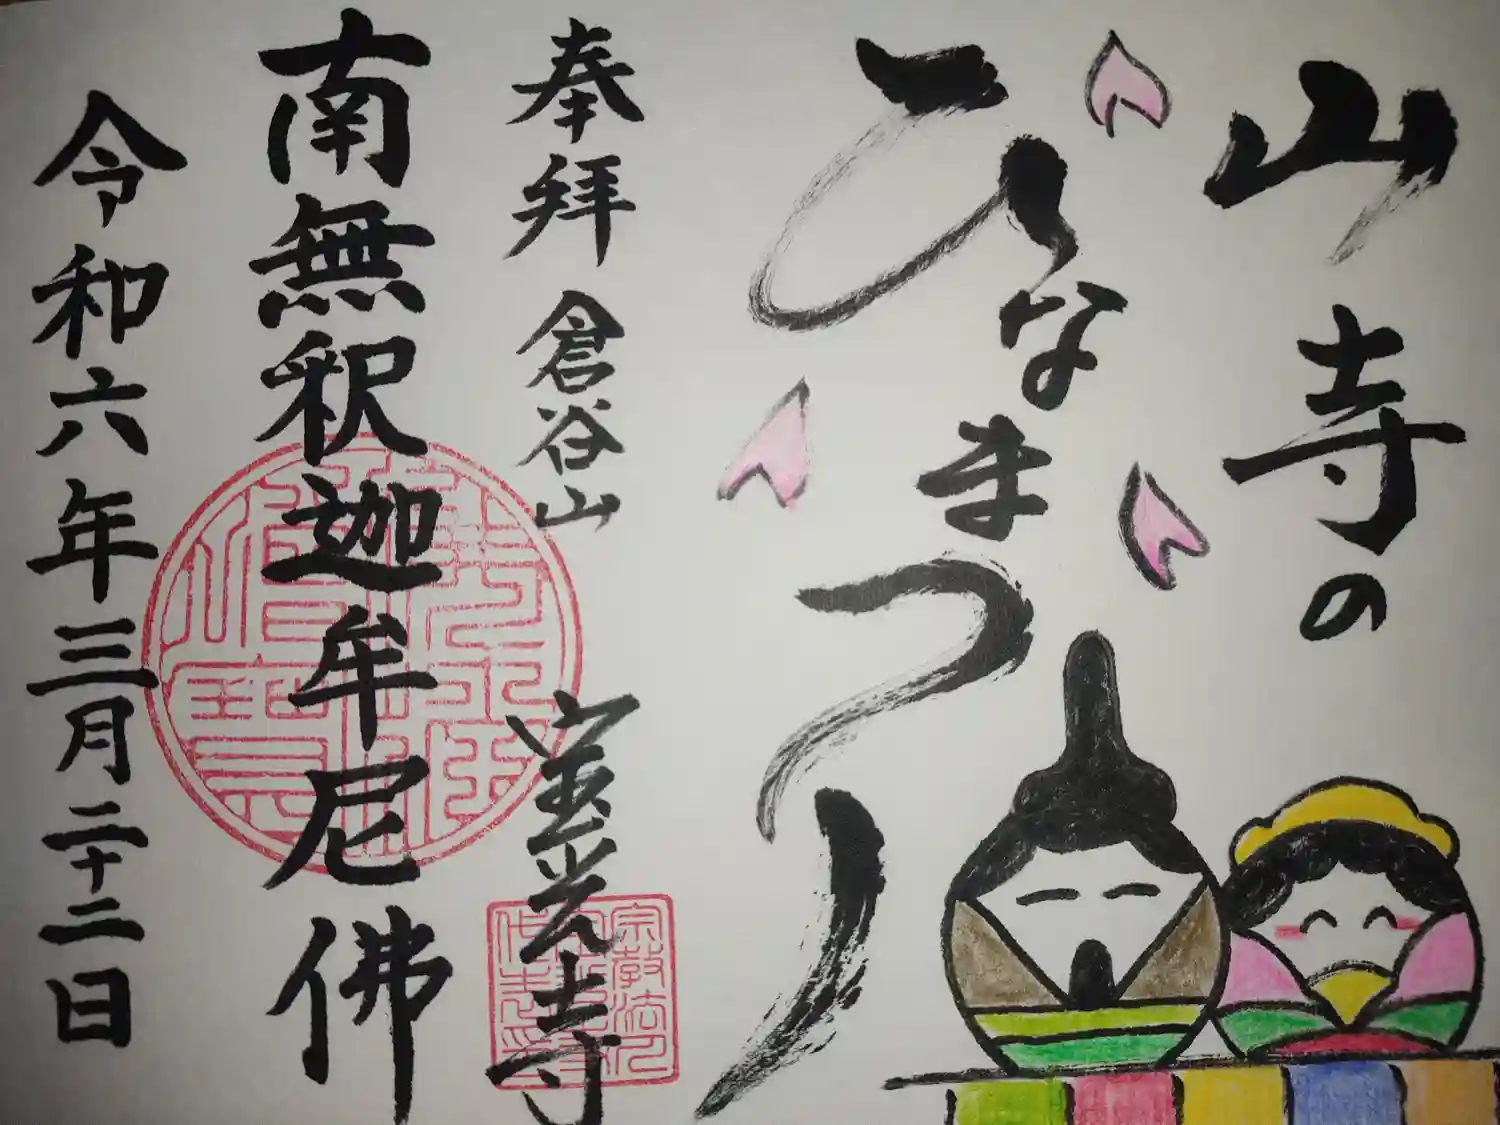 山寺の
ひなまつり
奉拝 倉谷山 宝光寺
南無釈迦牟尼佛
令和六年三月二十二日